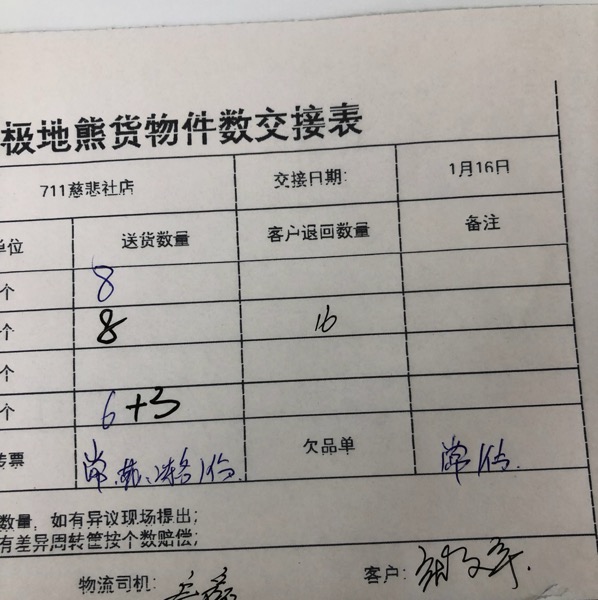 极地熊货物件数交接表
711慈悲社店 交接日期: 1月16日
单位 送货数量 客户退回数量 备注
个 8
个 8 16
个
个 6+3
票 欠品单
数量, 如有异议现场提出;
有差异周转筐按个数赔偿;
物流司机: 客户: